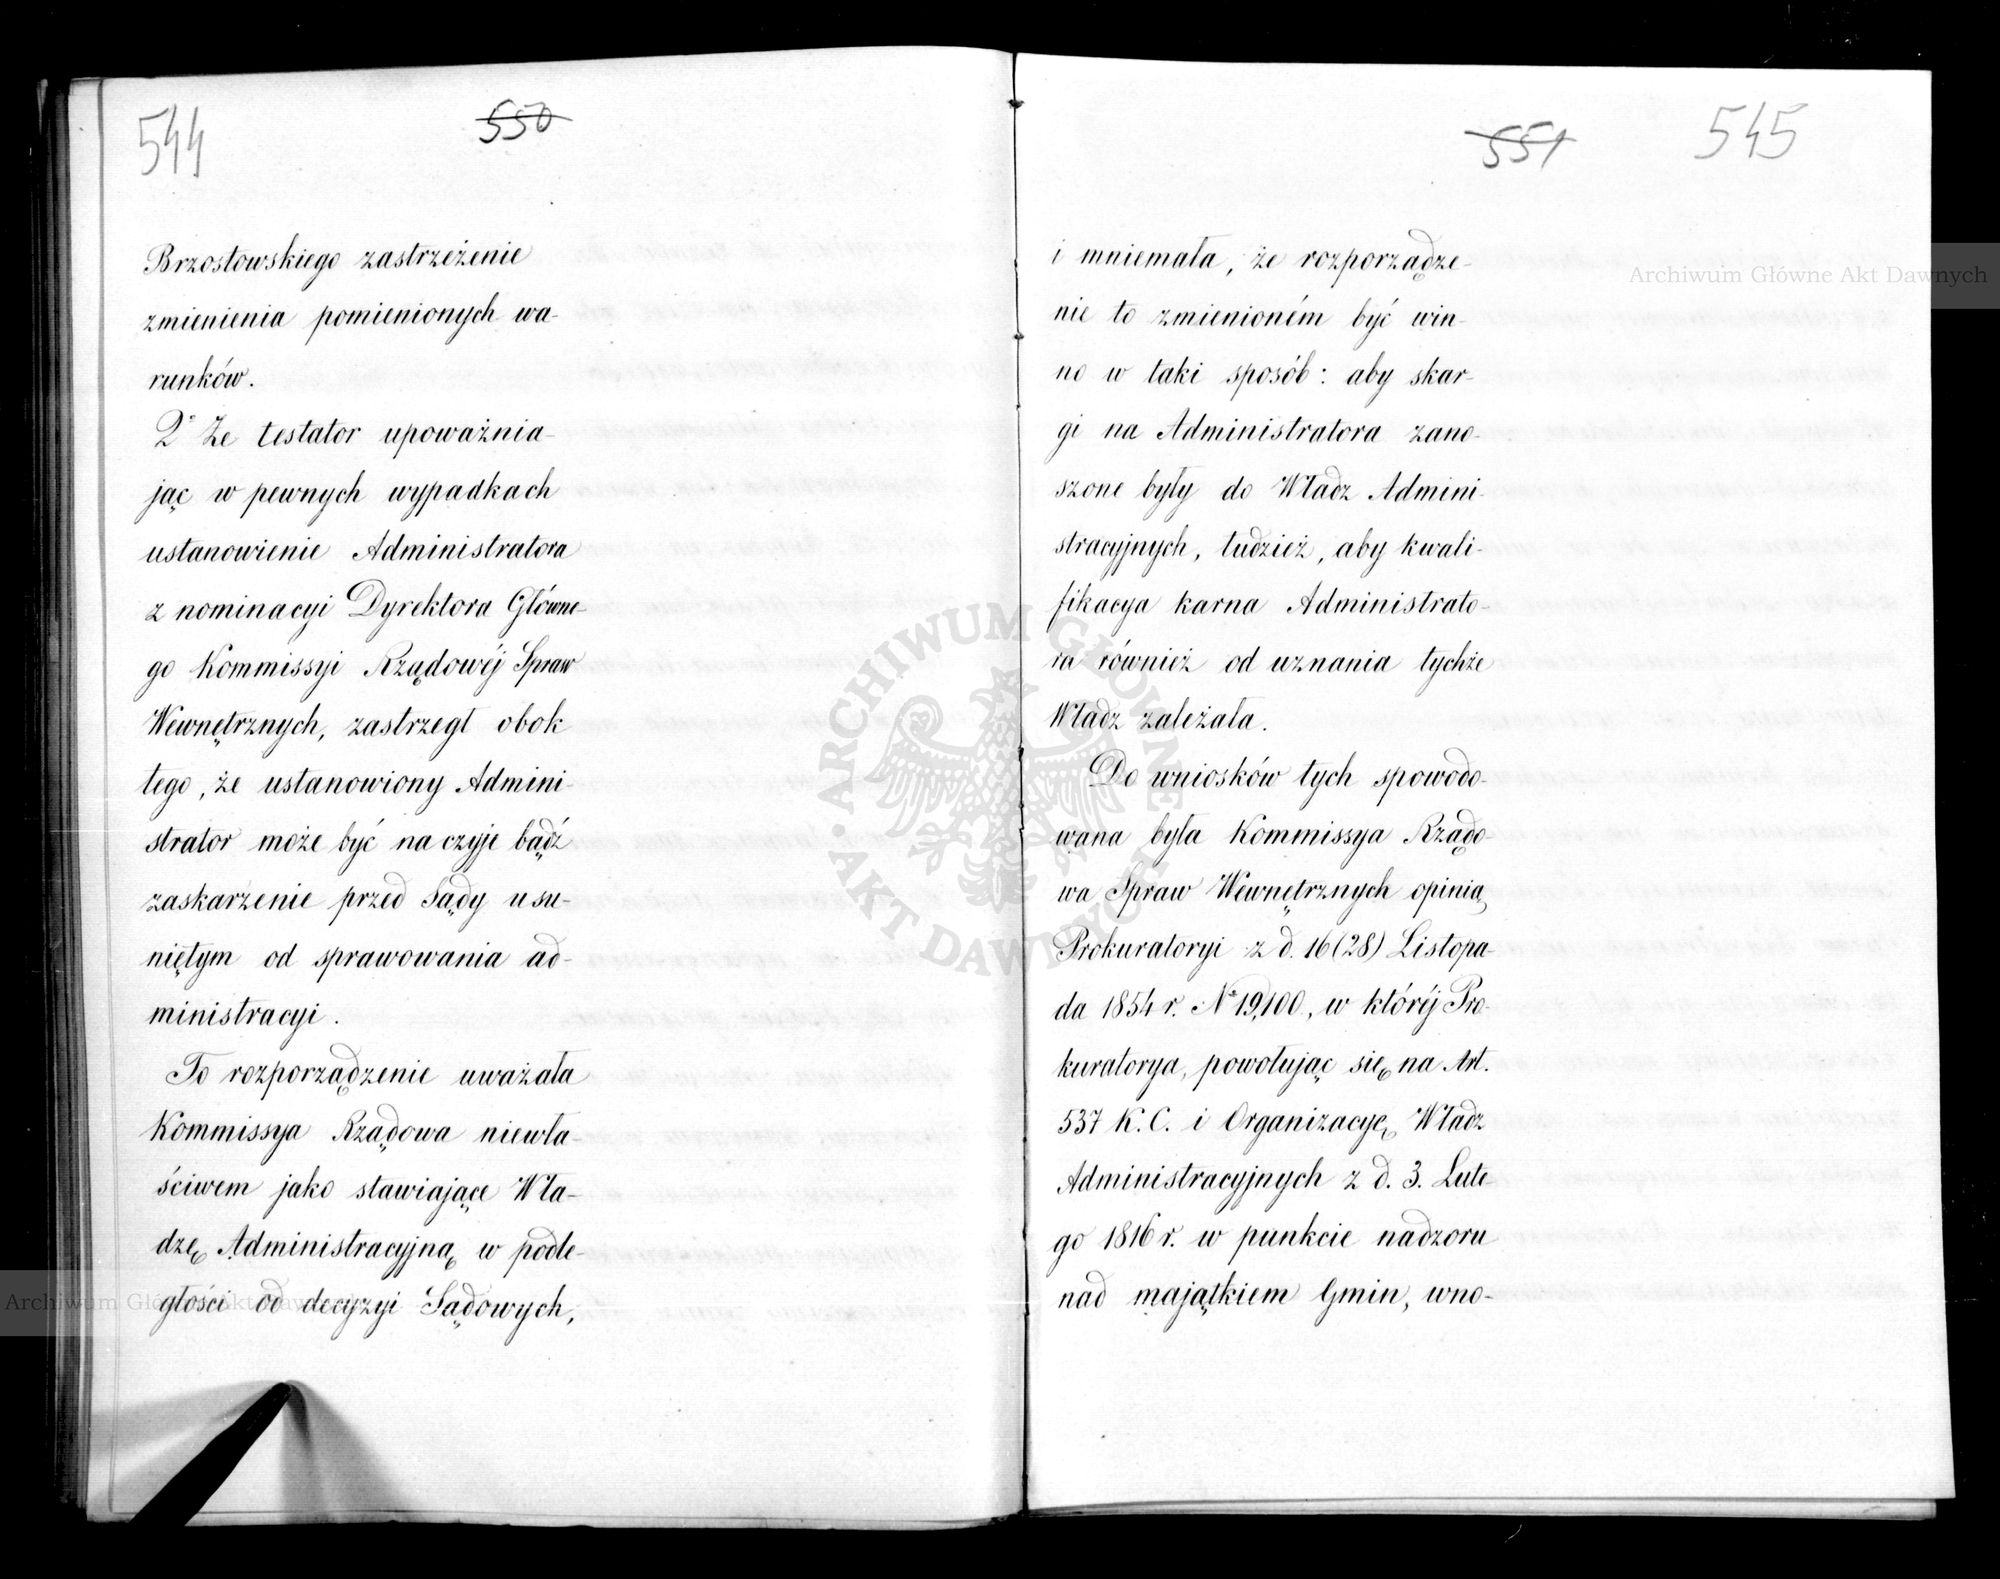 544
550
Brzostowskiego zastrzeżenie
zmienienia pomienionych wa-
runków.
2° Że testator upoważnia-
jąc w pewnych wypadkach
ustanowienie Administratora
z nominacyi Dyrektora Główne-
go Kommissyi Rządowéj Spraw
Wewnętrznych, zastrzegł obok
tego, że ustanowiony Admini-
strator może być na czyje bądź
zaskarżenie przed Sądy usu-
niętym od sprawowania ad-
ministracyi.
To rozporządzenie uważała
Kommissya Rządowa niewła-
ściwem jako stawiające Wła-
dzę Administracyjną w podle-
głości od decyzyi Sądowych,
551
545
i mniemała, że rozporządze-
nie to zmienioném być win-
no w taki sposób: aby skar-
gi na Administratora zano-
szone były do Władz Admini-
stracyjnych, tudzież, aby kwali-
fikacya karna Administrato-
ra również od uznania tychże
Władz zależała.
Do wniosków tych spowodo-
wana była Kommissya Rządo-
wa Spraw Wewnętrznych opinią
Prokuratoryi z d. 16 (28) Listopa-
da 1854 r. № 19,100., w któréj Pro-
kuratorya, powołując się na Art.
537 K. C. i Organizacyę Władz
Administracyjnych z d. 3. Lute
go 1816 r. w punkcie nadzoru
nad majątkiem Gmin, wno-
Archiwum Główne Akt Dawnych
Archiwum Główne Akt Dawnych
ARCHIWUM GŁÓWNE
AKT DAWNYCH